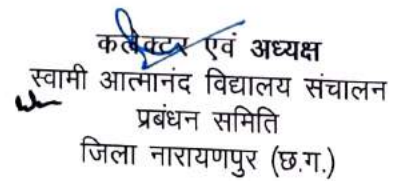 कलेक्टर एवं अध्यक्ष
स्वामी आत्मानंद विद्यालय संचालन
प्रबंधन समिति
जिला नारायणपुर (छ.ग.)